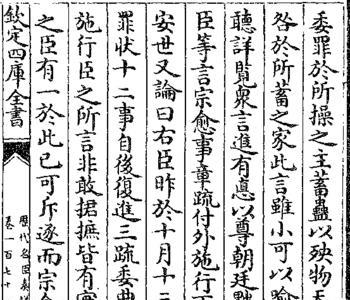 委罪於所操之主蓄蠱以殃物
咎於所蓄之家此言雖小可以
聽詳覽衆言進有悳以尊朝廷
臣等言宗愈事章疏付外施行
安世又論曰右臣昨於十月十三
罪狀十二事自後復進三疏委
施行臣之所言非敢捃摭皆有
之臣有一於此已可斥逐而宗
欽定四庫全書
歴代名臣奏
卷一百七十